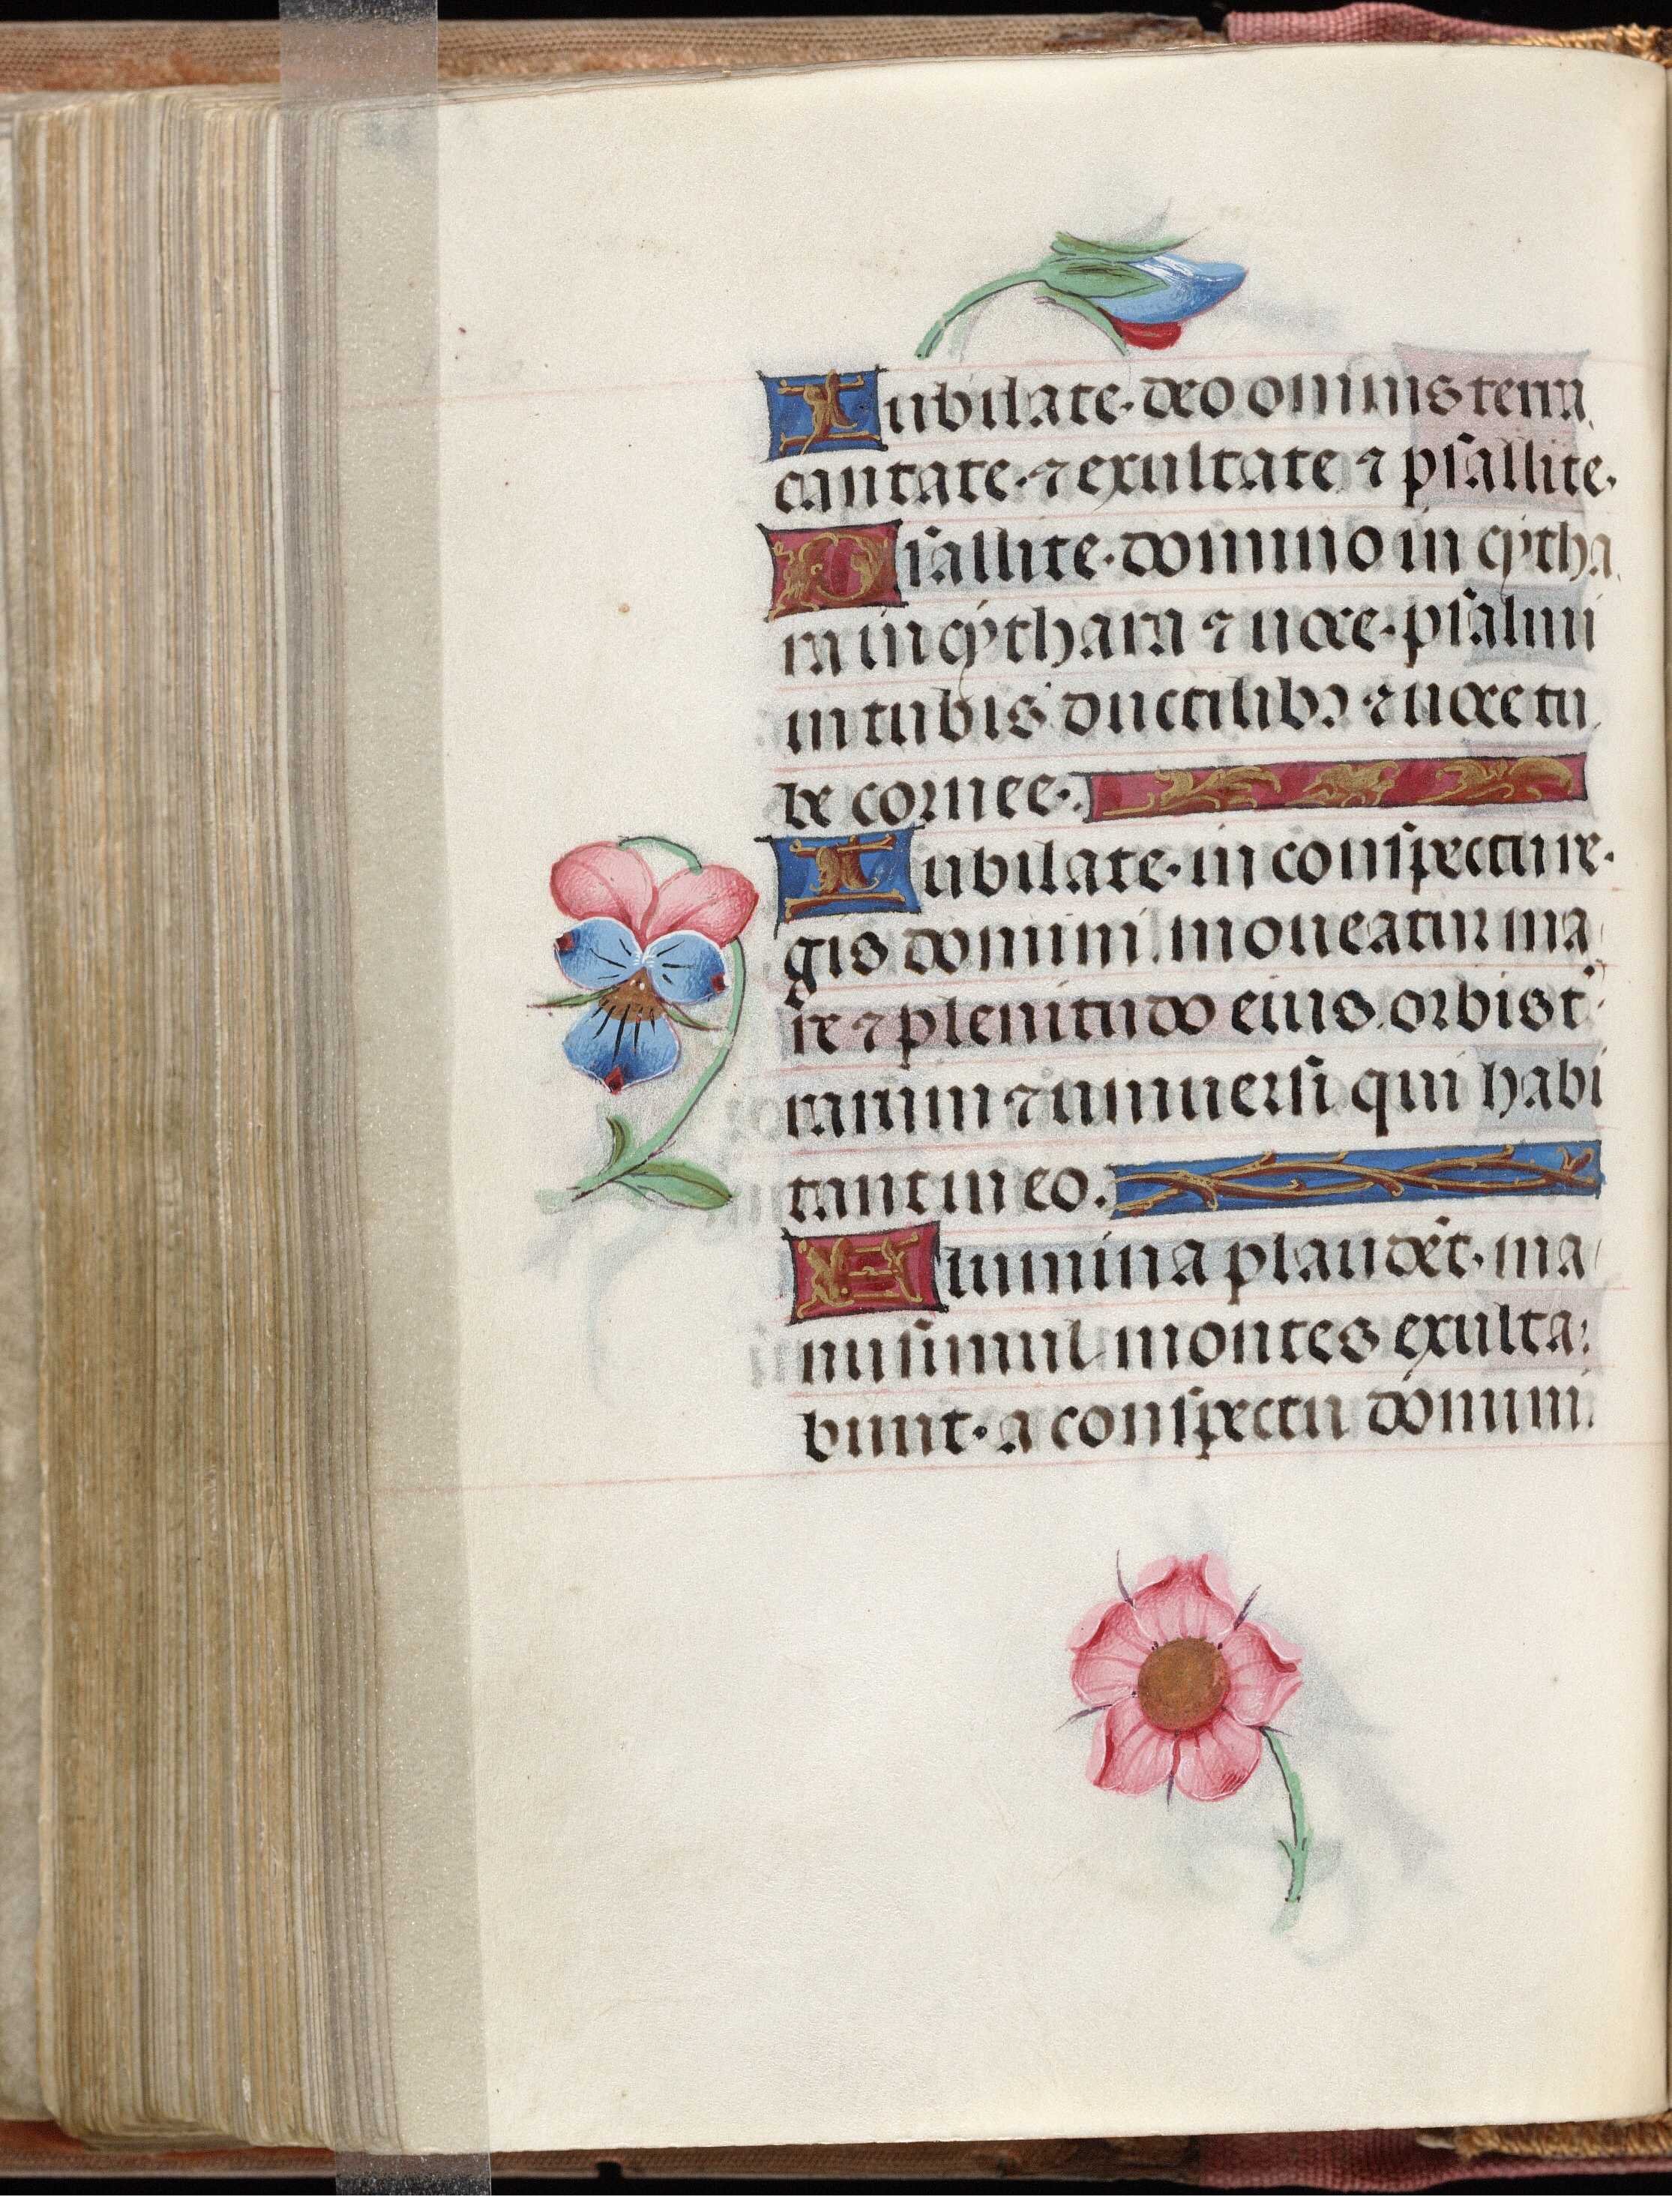 Iubilate· deo omnis terra
cantate· ⁊ exultate ⁊ psallite·
Psallite· domino in cytha
ra in cythara ⁊ uoce· psalmi
in tubis ductilibꝫ ⁊ uoce tu
be cornee·
Iubilate· in conspectu re·
gis domini moueatur ma
re ⁊ plenitudo eius orbis t̕
rarum ⁊ uniuersi qui habi
tant in eo.
Flumina plaudēt· ma
nu simul montes exulta
bunt· a conspectu domini